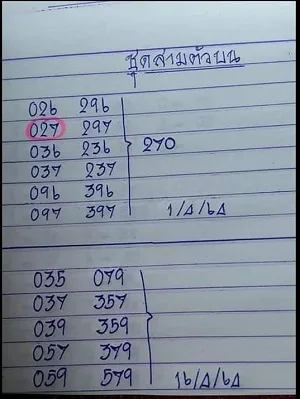 ชุดสามตัวบน
026 296
027 297
036 236
037 237
096 396
097 397
270
1/4/64
035 079
037 357
039 359
057 379
059 579
16/4/64